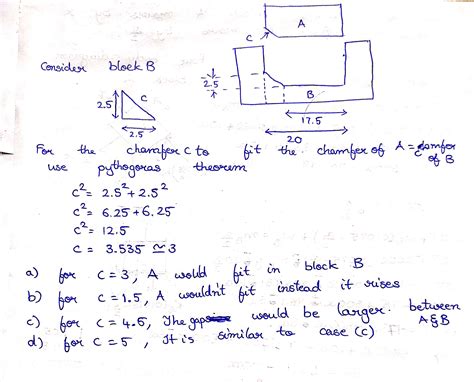 A
C
Consider block B
2.5
B
17.5
20
2.5
C
2.5
For the chamfer C to fit the chamfer of A = chamfer of B
use pythogoras theorem
c² = 2.5² + 2.5²
c² = 6.25 + 6.25
c² = 12.5
c = 3.535 ≅ 3
a) for c = 3, A would fit in block B
b) for c = 1.5, A wouldn't fit instead it rises
c) for c = 4.5, The gap would be larger between A & B
d) for c = 5, It is similar to case (c)